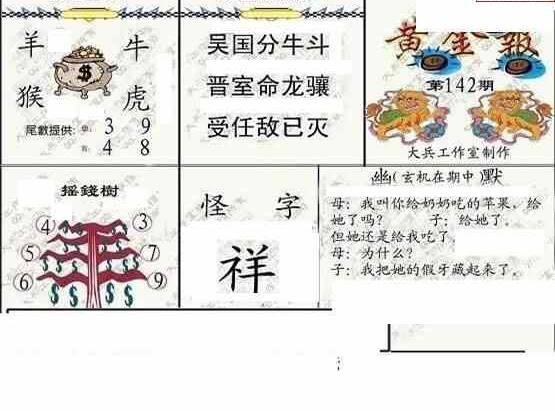 羊 牛
$
猴 虎
尾數提供: 3 9
4 8
吴国分牛斗
晋室命龙骧
受任敌已灭
黄金報
第142期
大兵工作室制作
摇錢樹
④ ③
⑤ ⑦
⑥ ⑨
$ $ $ $ $ $
怪 字
祥
幽(玄机在期中 默
母：我叫你给奶奶吃的苹果，给
她了吗？ 子：给她了，
但她还是给我吃了，
母：为什么？
子：我把她的假牙藏起来了，